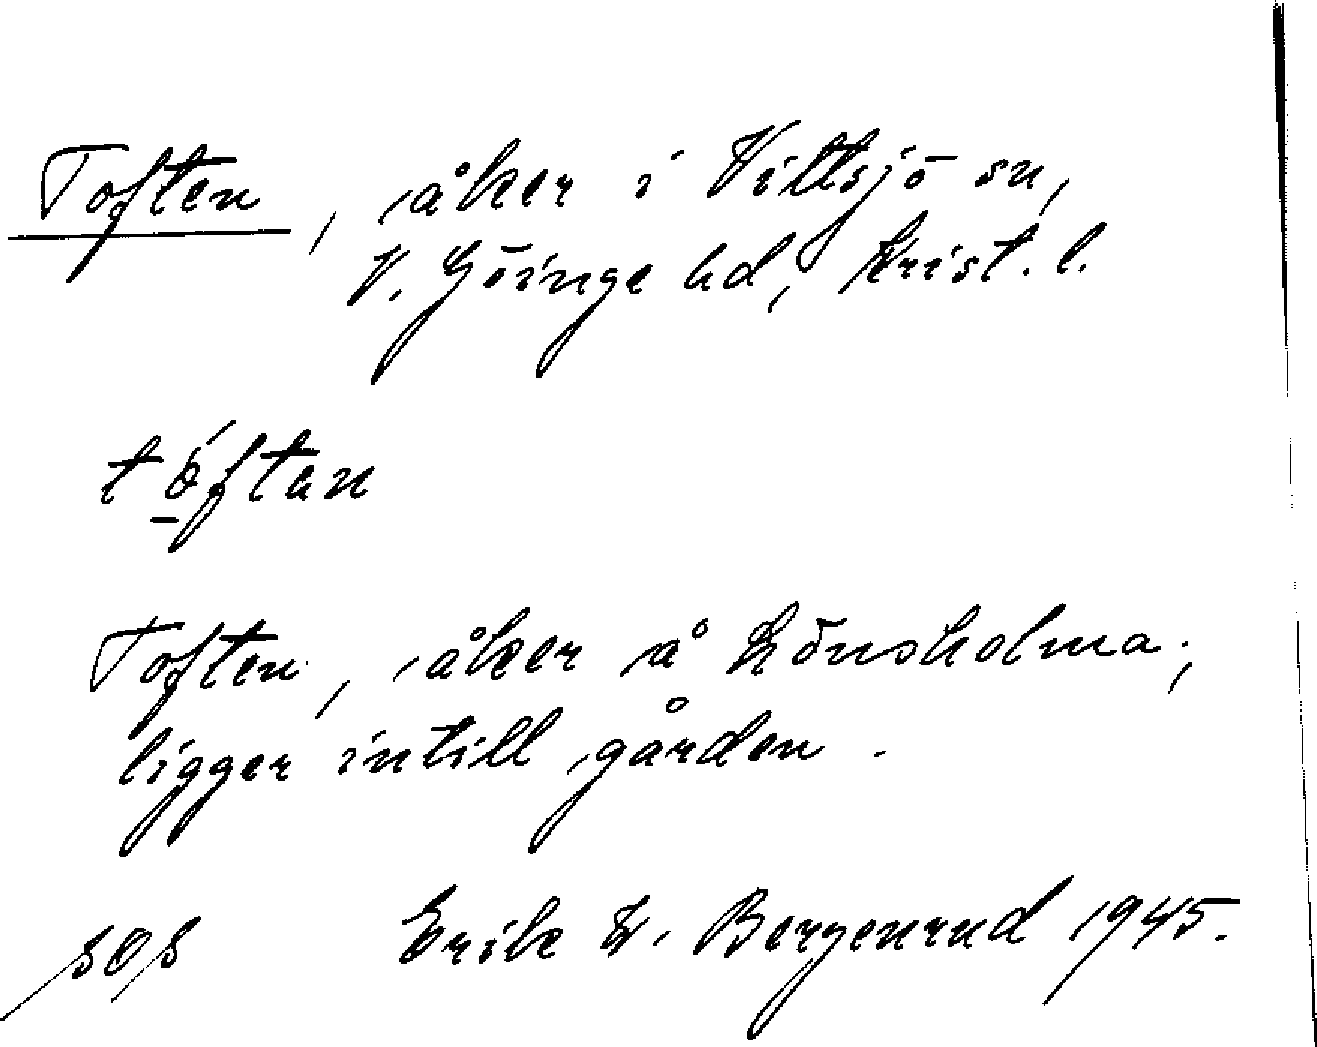 Toften, åker i Vittsjö sn,
V. Göinge hd, Krist. l.
tóftan
Toften, åker å Lönsholma;
ligger intill gården.
Erik W. Bergenrud 1945.